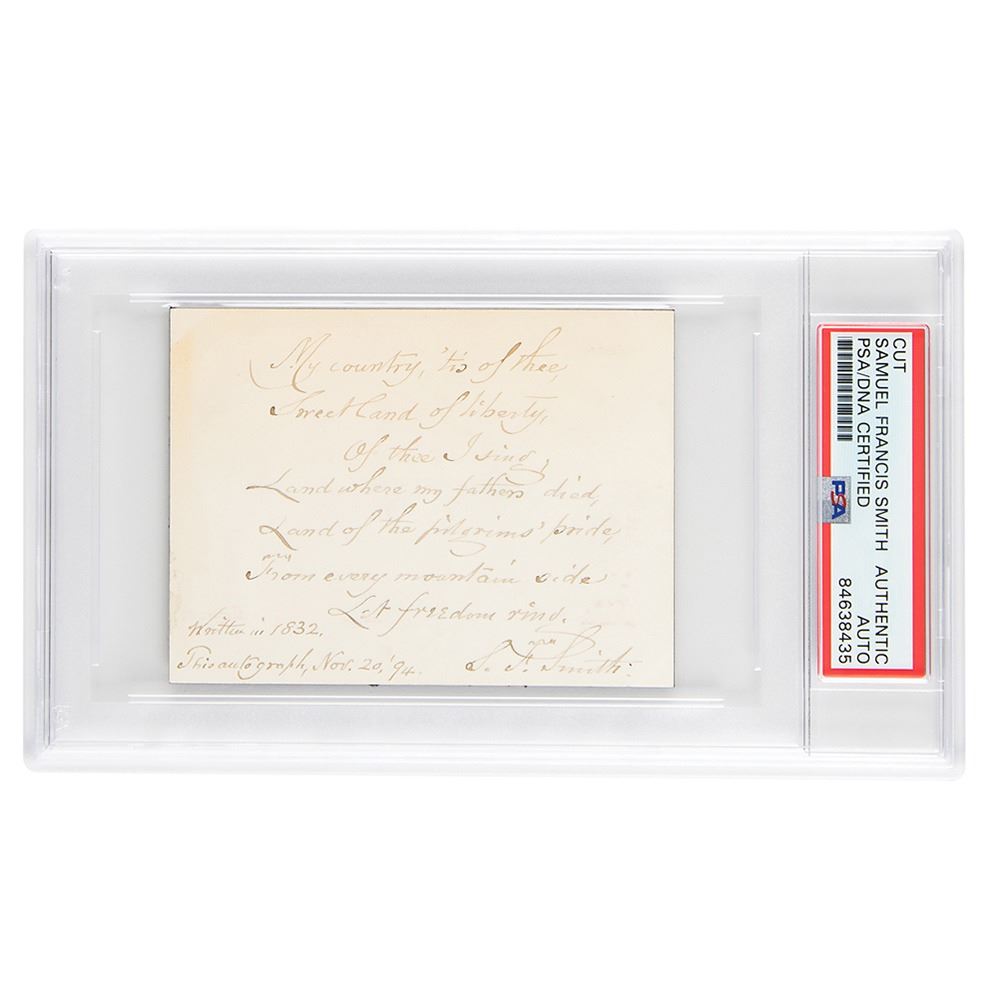 My country, 'tis of thee,
Sweet Land of liberty,
Of thee I sing,
Land where my fathers died,
Land of the pilgrims' pride,
From every mountain side
Let freedom ring.
Written in 1832.
This autograph, Nov. 20, '94.
S. F. Smith.
CUT
SAMUEL FRANCIS SMITH AUTHENTIC
PSA/DNA CERTIFIED AUTO
84638435
PSA